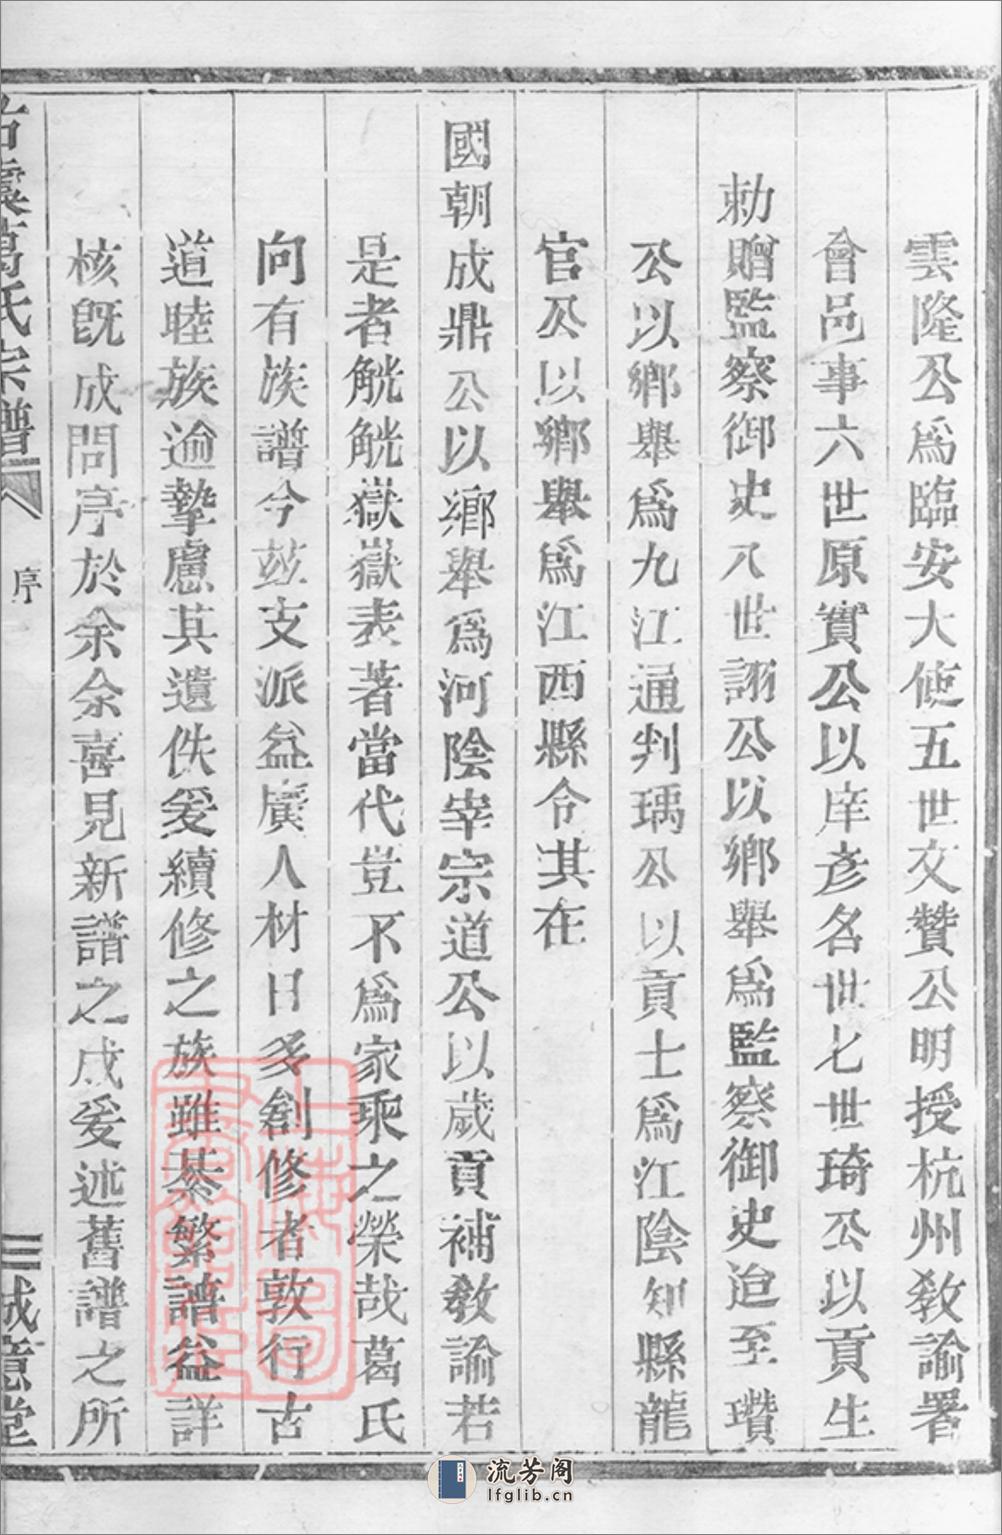 雲隆公爲臨安大使五世文贊公明授杭州敎諭署
會邑事六世原實公以庠彥名世七世琦公以貢生
勅贈監察御史八世詡公以鄉舉爲監察御史迨至瓚
公以鄉舉爲九江通判瑀公以貢士爲江陰知縣龍
官公以鄉舉爲江西縣令其在
國朝成鼎公以鄉舉爲河陰宰宗道公以歲貢補敎諭若
是者觥觥嶽嶽表著當代豈不爲家乘之榮哉葛氏
向有族譜今玆支派益廣人材日多創修者敦行古
道睦族逾摯慮其遺佚爰續修之族雖綦繁譜益詳
核旣成問序於余余喜見新譜之成爰述舊譜之所
古虞葛氏宗譜
序
三
誠意堂
上海圖書館藏
流芳阁
lfglib.cn